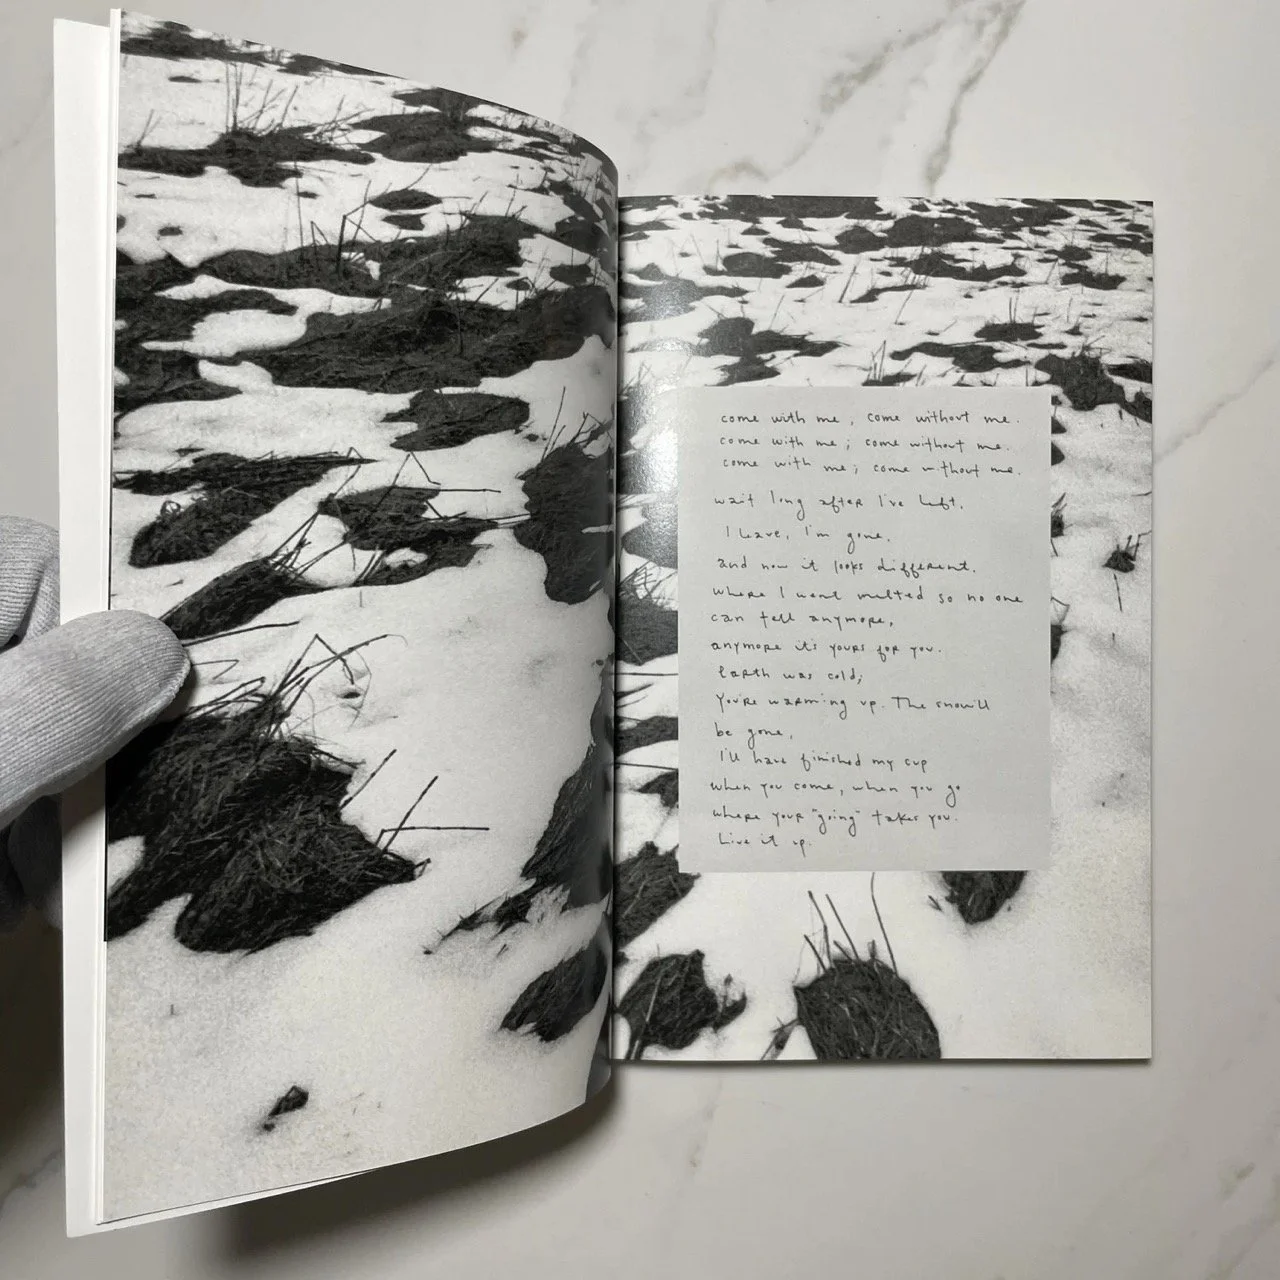 come with me, come without me.
come with me; come without me.
come with me; come without me.
wait long after I've left.
I leave, I'm gone.
and now it looks different.
where I went melted so no one
can tell anymore,
anymore it's yours for you.
Earth was cold;
You're warming up. The snow'll
be gone,
I'll have finished my cup
when you come, when you go
where your "going" takes you.
Live it up.